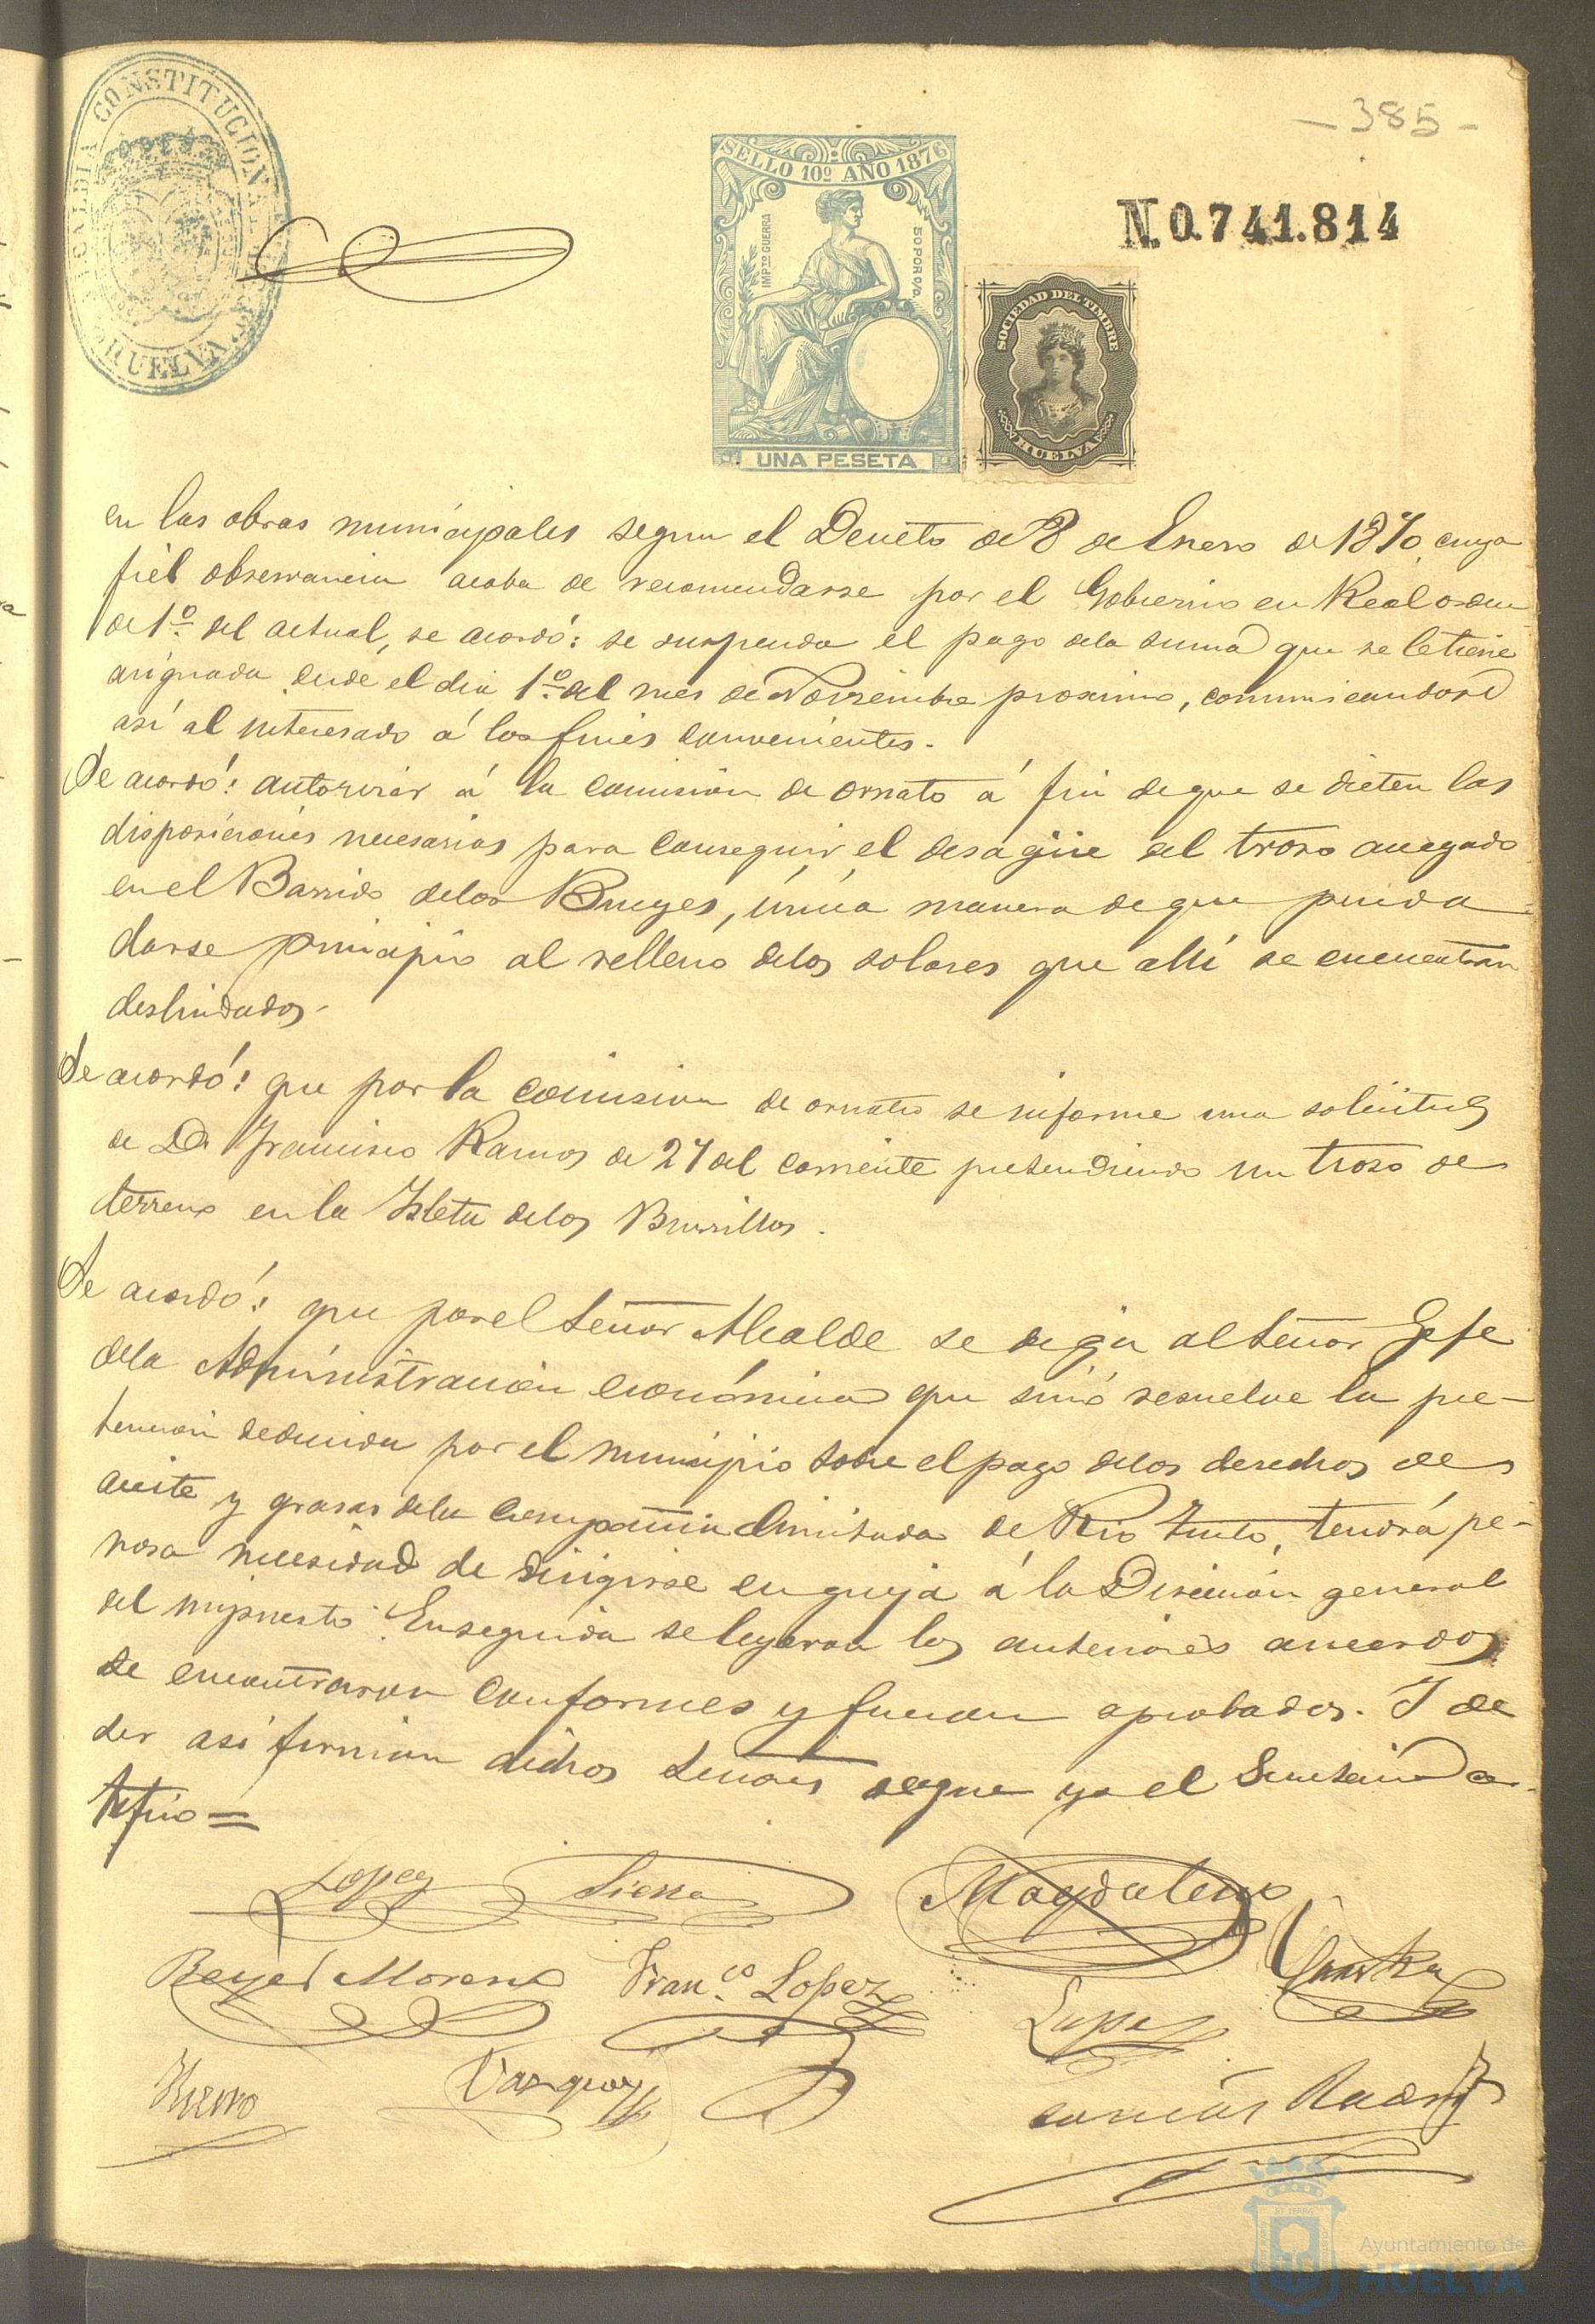 ALCALDIA CONSTITUCIONAL
HUELVA
- 385 -
SELLO 10º AÑO 1876
IMPTO GUERRA
50 POR 0/0
UNA PESETA
N. 0.741.814
SOCIEDAD DEL TIMBRE
HUELVA
en las obras municipales segun el Decreto de 8 de Enero de 1870, cuya
fiel observancia acaba de recomendarse por el Gobierno en Real orden
de 1º del actual, se acordó: se suspenda el pago de la suma que se le tiene
asignada desde el dia 1º del mes de Noviembre procsimo, comunicandose
así al interesado á los fines convenientes.
Se acordó: autorizar á la comision de ornato á fin de que se dicten las
disposiciones necesarias para conseguir el desagüe del troso anegado
en el Barrio de los Bueyes, única manera de que pueda
darse principio al relleno de los solares que allí se encuentran
deslindados.
Se acordó: que por la comision de ornato se informe una solicitud
de Dn Francisco Ramos de 27 del corriente pretendiendo un troso de
terreno en la Isleta de los Burrillos.
Se acordó: que por el Señor Alcalde se diga al Señor Gefe
de la Administracion económica que sinó resuelve la pre-
tension deducida por el municipio sobre el pago de los derechos de
aceite y grasas de la Compañia limitada de Rio Tinto, tendrá pe-
nosa necesidad de dirigirse en queja á la Direccion general
del impuesto. Enseguida se leyeron los anteriores acuerdos
se encontraron conformes y fueron aprobados. Y de
ser así firman dichos Señores de que yo el Secretario cer-
tifico =
Lopez Sierra Magdaleno
Reyes Moreno Fran.co Lopez
Lopez
Hierro Vazquez
Ayuntamiento de
HUELVA